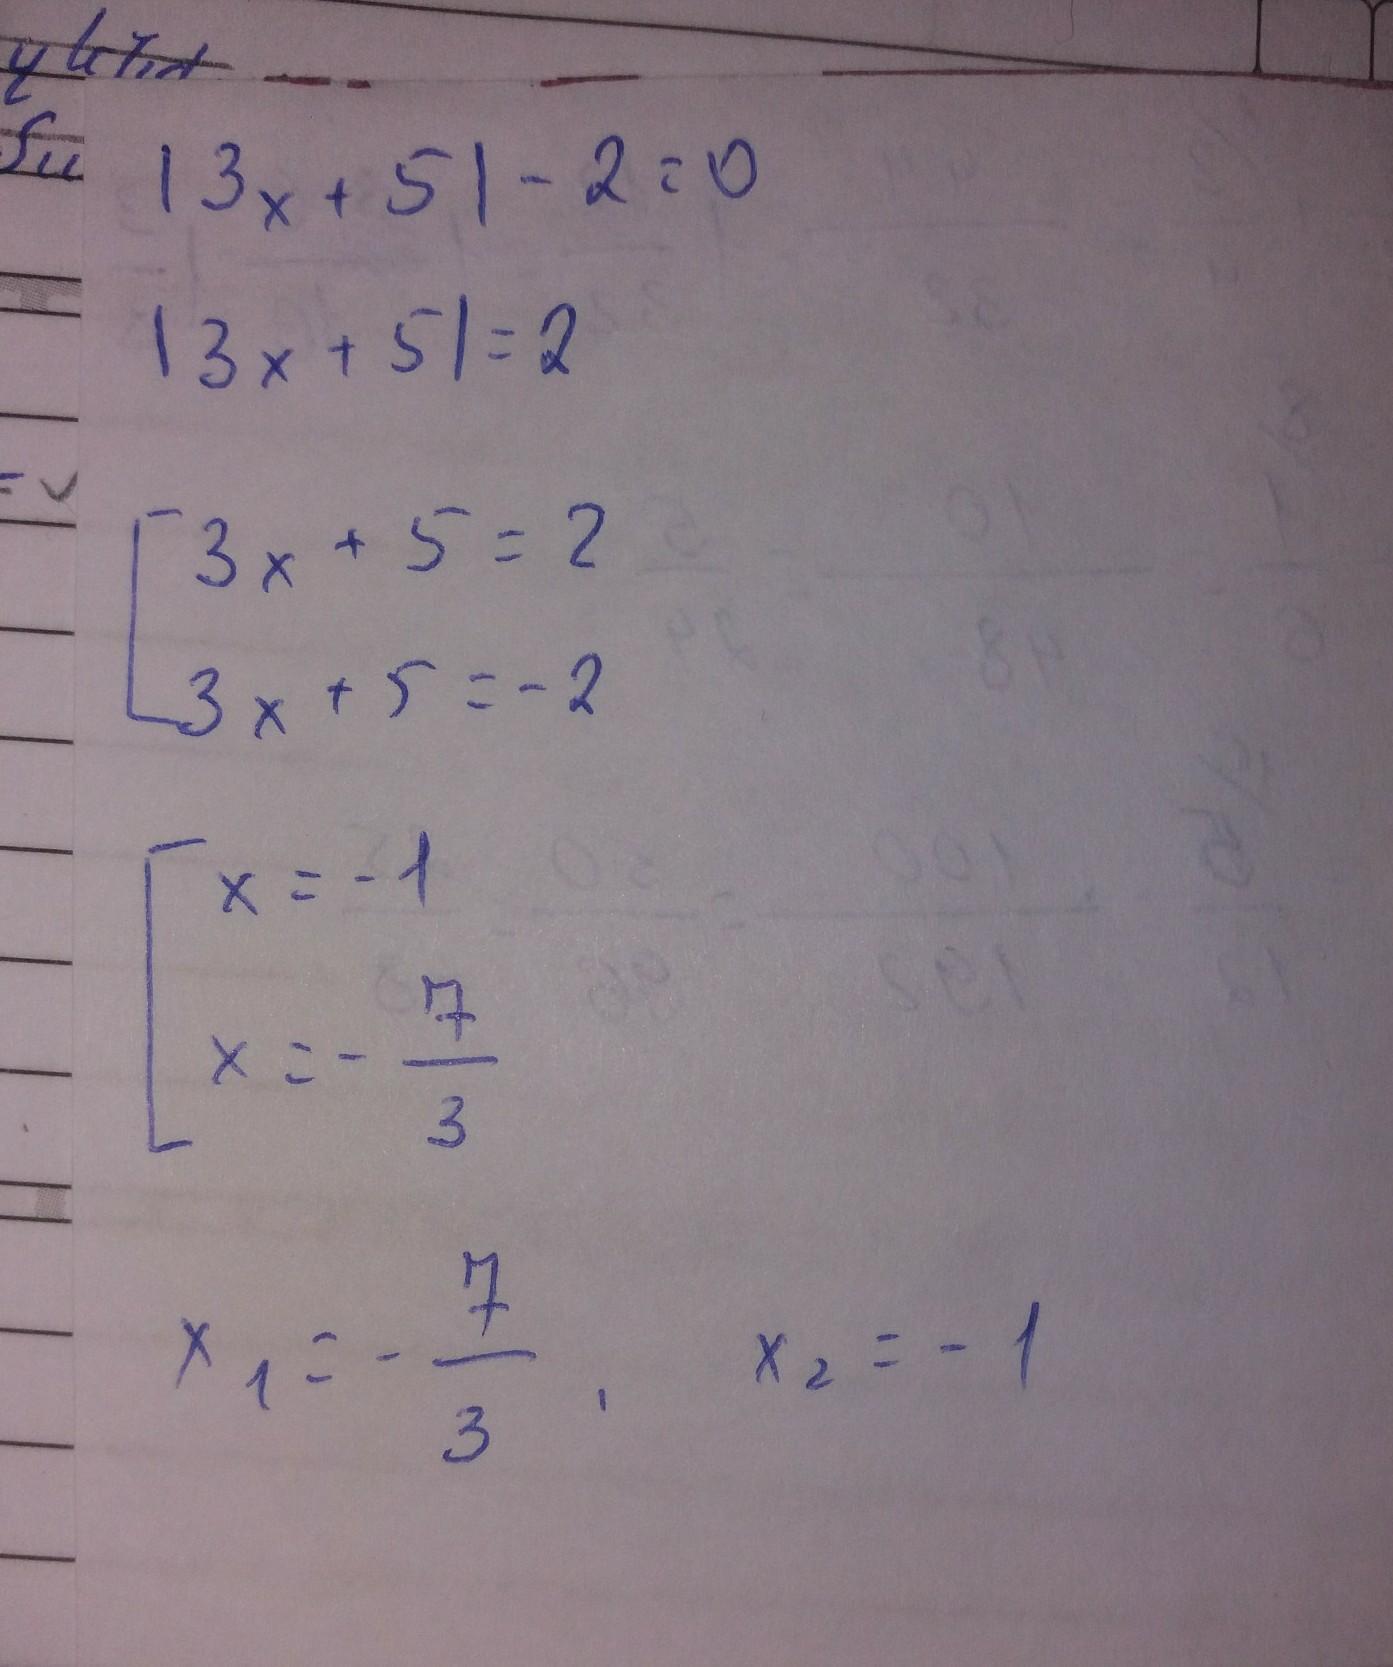 |3x + 5| - 2 = 0
|3x + 5| = 2
[ 3x + 5 = 2
3x + 5 = -2
[ x = -1
x = - 7/3
x₁ = - 7/3 , x₂ = - 1